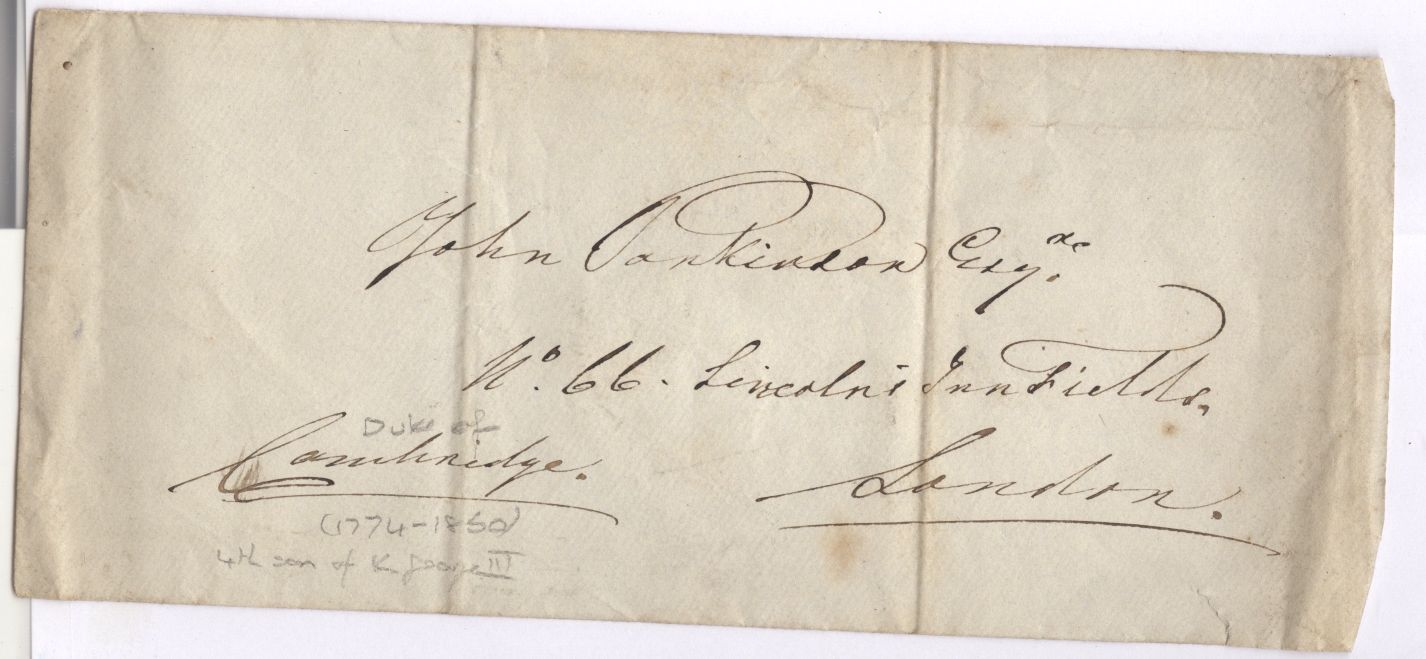 John Parkinson Esqre.
No. 66. Lincoln's Inn Fields.
Duke of
Cambridge.
London.
(1774-1850)
4th son of K George III